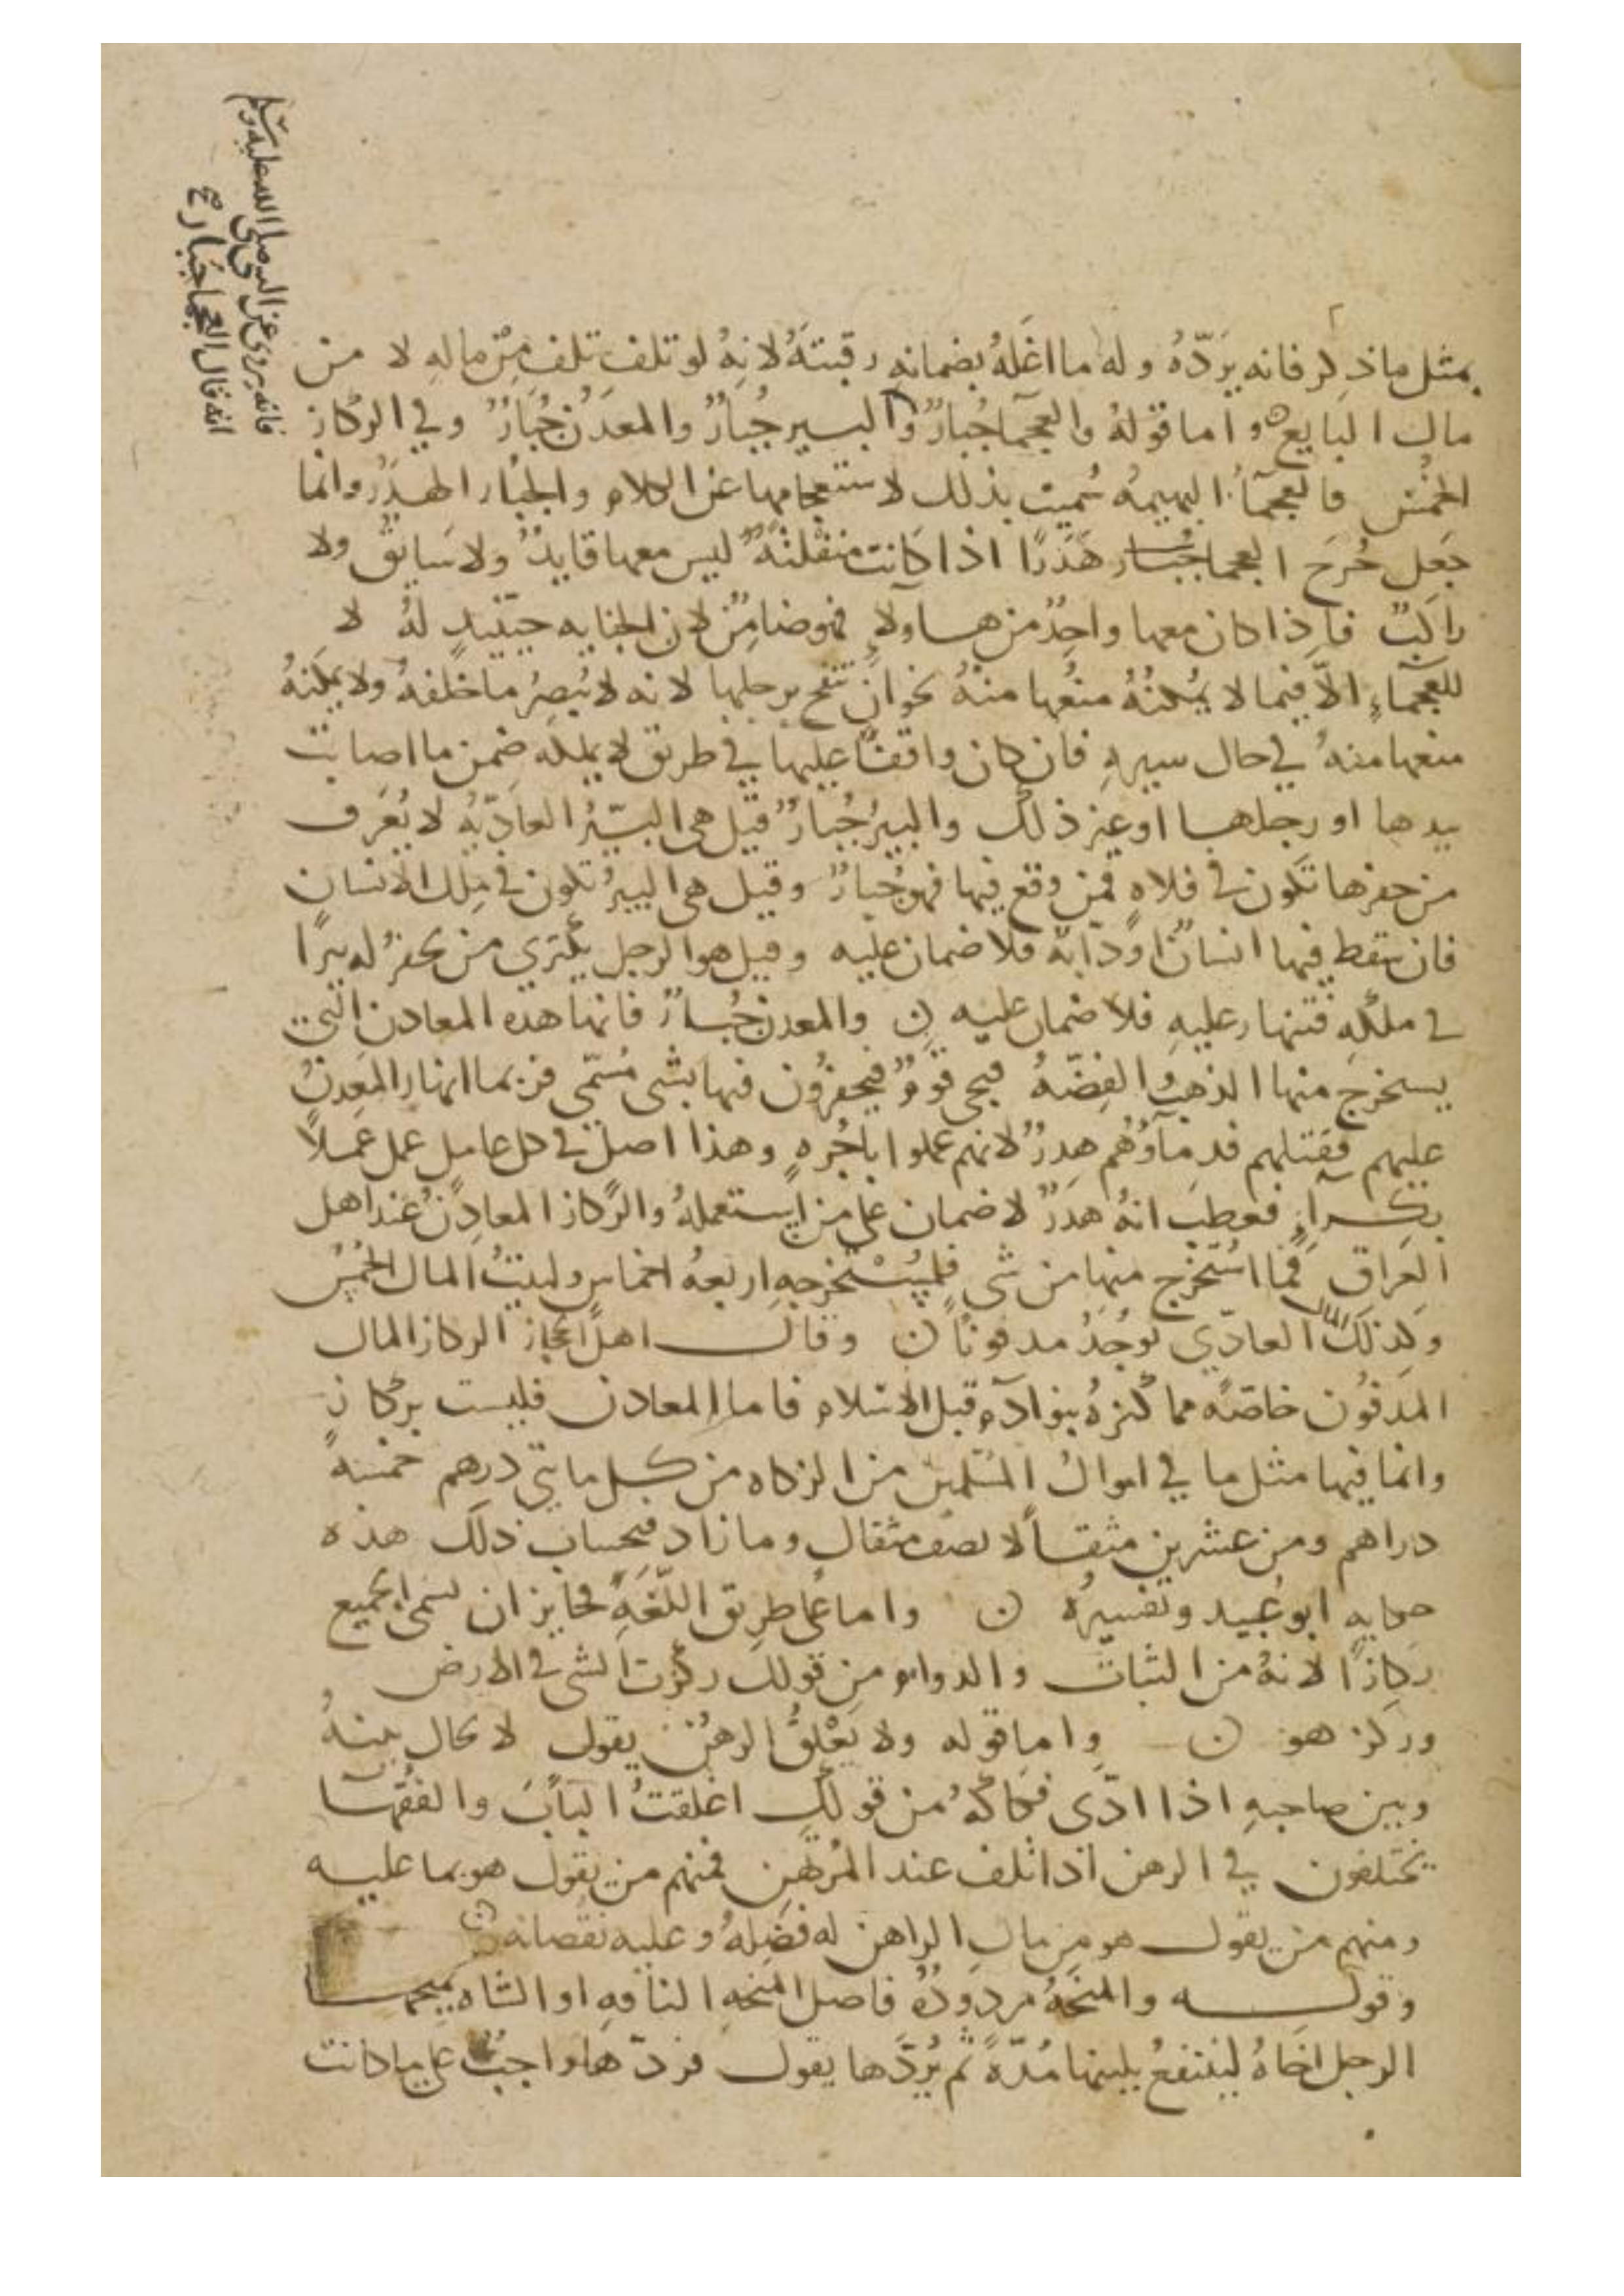 فانه يروى عن النبي صلى الله عليه وسلم
انه قال العجما جبار
بمثل ما ذكر فانه يَردّهُ وله ما اغَلهُ بضمانهِ رقبتَهُ لانهُ لو تلف تلف مِنْ مالهِ لا من
مال البايع واما قولهُ والعجمآ جُبارٌ والبيير جُبارٌ والمعدَنُ جُبَارٌ وفي الركاز
الخمُسُ فالعجمآُ البهيمهُ سُميت بذلك لاستعجامها عن الكلام والجُبار الهدَرُ وانما
جَعِل جُرحَ العجما جُبار هَدَرًا اذا كانت منفلتهً ليس معها قايدٌ ولا سَايقٌ ولا
راكبٌ فاذا كان معها واحِدٌ من هاولآءِ فهو ضامِنٌ لان الجنايه حينيذٍ لهُ لا
للعجمآءِ الاّ فيما لا يُمكنُهُ منعُها منهُ نحو ان تنفح برجلها لانه لا يُبصِرُ ما خلفهُ ولا يمكنهُ
منعها منهُ في حال سيرهِ فان كان واقفًا عليها في طريق لا يملكه ضمن ما اصابت
بيدها او رجلها او غير ذلك والبيرُ جُبارٌ قيل هي البئرُ العادّيهُ لا يُعَرف
من حفرها تكون في فلاهٍ فمن وقع فيها فهو جُبارٌ وقيل هي البيرُ تكون في مِلك الانسان
فان سَقط فيها انسانٌ او دَابّهٌ فلا ضمان عليه وقيل هو الرجل يكتري من يحفرُ له بيرًا
في ملكهِ فتنهار عليهِ فلا ضمان عليه ن والمعدن جُبارٌ فانها هذه المعادن التي
يستخرج منها الذهب والفِضّهُ فيجي قومٌ فيحفرُون فيها بشي مُسَمّى فربما انهار المعدِنُ
عليهم فقتلهم فدمآوُهُم هدرٌ لانهم عملوا باجُرهٍ وهذا اصلٌ في كل عامِلٍ عمل عمَلاً
بكِرآءٍ فعطِبَ انهُ هدَرٌ لا ضمان على من استعملهُ والرّكاز المعادِنُ عند اهل
العَراق فما اسُتخرج منها من شي فلِمُسْتخرجهِ اربعهُ اخماسٍ ولبيتُ المال الخُمسُ
وكذلك المال العادّي يُوجَدُ مدفونًا ن وقال اهل الحجاز الركاز المال
المدَفوُن خاصّهً مما كنزهُ بنوا آدم قبل الاسلام فاما المعادن فليست بركازٍ
وانما فيها مثل ما في اموال المسُلمين من الزكاه من كل مايتي درهم خمسهُ
دراهم ومن عشرين مثقالاً نصف مثقال وما زاد فبحساب ذلك هذه
حكايه ابو عُبيد وتفسيرُهُ ن واما على طريق اللّغَهِ فجايز ان يسمى الجميع
ركازًا لانهُ من الثبات والدوام من قولك ركزت الشي في الارض
وركز هو ن واما قوله ولا يَغْلقُ الرهُن يقول لا يحال بينهُ
وبين صاحبهِ اذا ادّى فَكاكهُ من قولك اغلقتُ البابَ والفُقهآ
يختلفون في الرهن اذا تلف عند المُرتهن فمنهم من يقول هو بما عليه
ومنهم من يقول هو من مال الراهن له فضلِهُ وعليه نقصانه
وقوله والمنِحَهُ مردودَهٌ فاصل المنحهِ الناقهِ او الشاه يمنحها
الرجل اخاهُ لينتفعُ بلبنها مُدّهً ثم يُردّها يقول فردّها واجبٌ على ما كانت